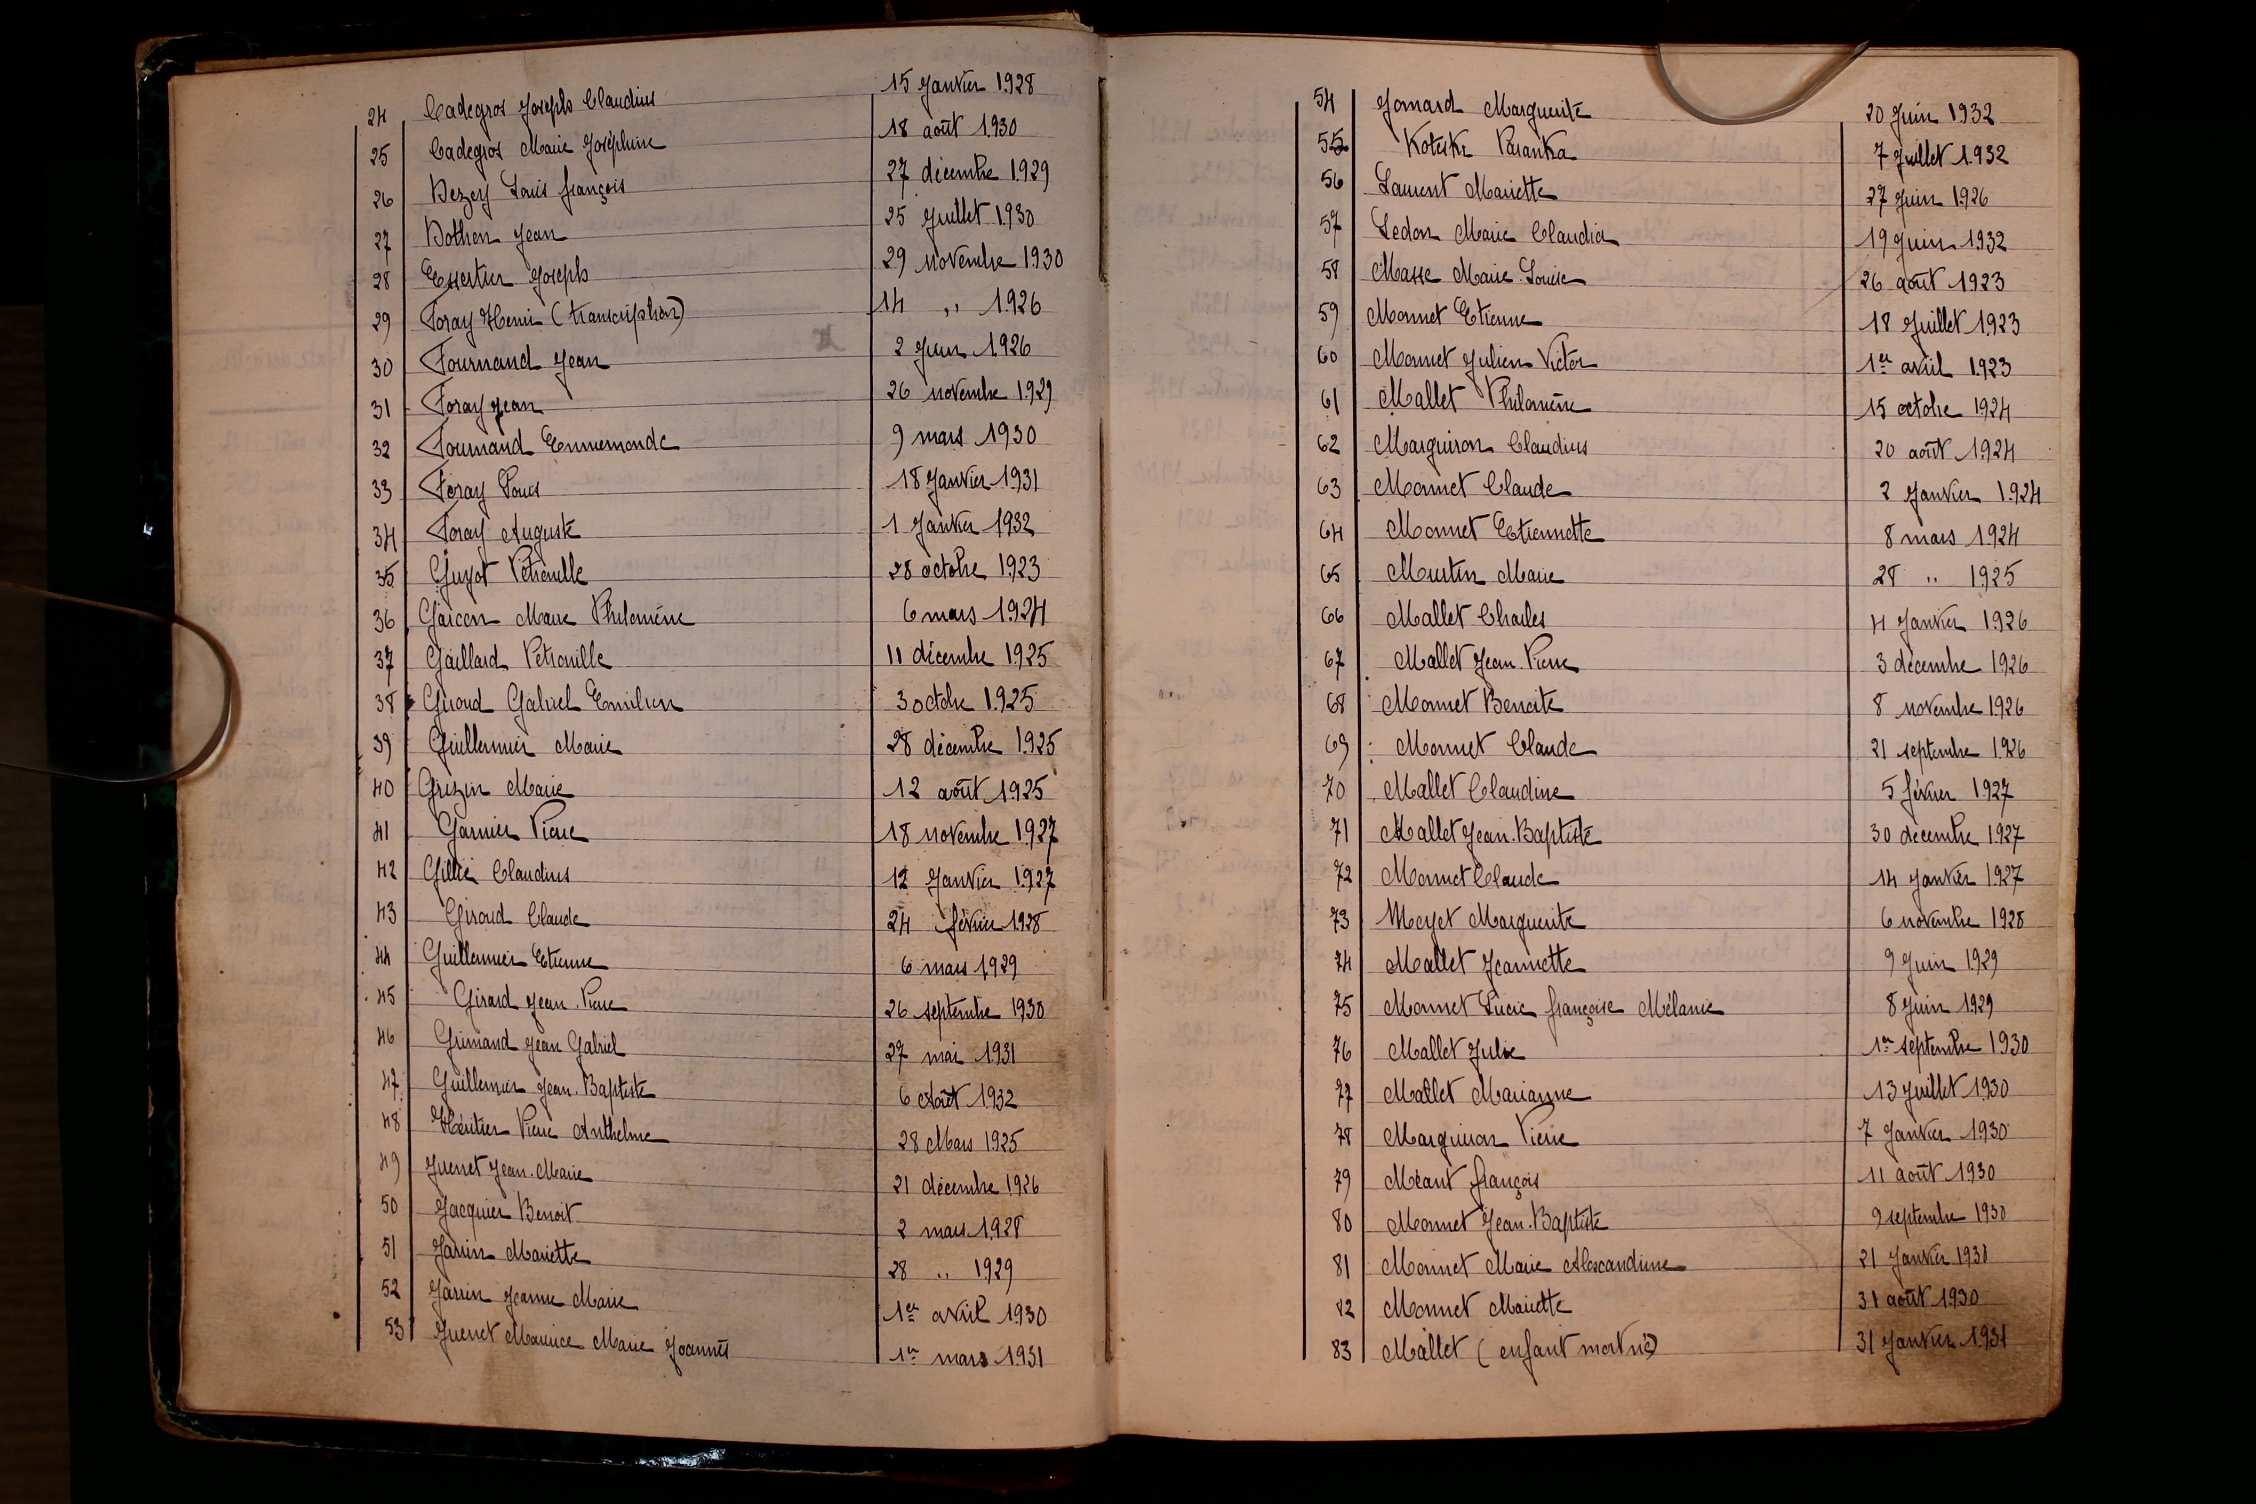 24 Cadegros Joseph Claudius 15 Janvier 1928
25 Cadegros Marie Joséphine 18 août 1930
26 Dezey Louis françois 27 décembre 1929
27 Bothen Jean 25 Juillet 1930
28 Essertier Joseph 29 Novembre 1930
29 Foray Henri (transcription) 14 " 1926
30 Fournand Jean 2 Juin 1926
31 Foray Jean 26 novembre 1929
32 Fournand Ennemonde 9 mars 1930
33 Foray Louis 18 Janvier 1931
34 Foray Auguste 1 Janvier 1932
35 Guyot Pétronille 28 octobre 1923
36 Garcon Marie Philomène 6 mars 1924
37 Gaillard Pétronille 11 décembre 1925
38 Giroud Gabriel Emilien 3 octobre 1925
39 Guillermier Marie 28 décembre 1925
40 Grezin Marie 12 août 1925
41 Garnier Pierre 18 novembre 1927
42 Claudius 12 Janvier 1927
43 Giroud Claude 24 février 1928
44 Guillermier Etienne 6 mars 1929
45 Girard Jean.Pierre 26 septembre 1930
46 Grimand Jean Gabriel 27 mai 1931
47 Guillermier Jean.Baptiste 6 Août 1932
48 Héritier Pierre Anthelme 28 Mars 1925
49 Juenet Jean.Marie 21 décembre 1926
50 Jacquier Benoit 2 mars 1928
51 Jarrin Mariette 28 " 1929
52 Jarrin Jeanne Marie 1er avril 1930
53 Juenet Maurice Marie Joannès 1er mars 1931
54 Jomard Marguerite 20 Juin 1932
55 Koteski Paranka 7 Juillet 1932
56 Laurent Mariette 27 Juin 1926
57 Ledon Marie Claudia 19 Juin 1932
58 Masse Marie.Louise 26 août 1923
59 Monnet Etienne 18 Juillet 1923
60 Monnet Julien Victor 1er avril 1923
61 Mallet Philomène 15 octobre 1924
62 Marguiron Claudius 20 août 1924
63 Monnet Claude 2 Janvier 1924
64 Monnet Etiennette 8 mars 1924
65 Marie 28 " 1925
66 Mallet Charles 4 Janvier 1926
67 Mallet Jean.Pierre 3 décembre 1926
68 Monnet Benoite 8 novembre 1926
69 Monnet Claude 21 septembre 1926
70 Mallet Claudine 5 février 1927
71 Mallet Jean.Baptiste 30 décembre 1927
72 Monnet Claude 14 Janvier 1927
73 Meyet Marguerite 6 novembre 1928
74 Mallet Jeannette 9 Juin 1929
75 Monnet Lucie françoise Mélanie 8 Juin 1929
76 Mallet Julie 1er septembre 1930
77 Mallet Marianne 13 Juillet 1930
78 Marguiron Pierre 7 Janvier 1930
79 Méant françois 11 août 1930
80 Monnet Jean.Baptiste 9 septembre 1930
81 Monnet Marie Alexandrine 21 Janvier 1930
82 Monnet Mariette 31 août 1930
83 Mallet (enfant mort né) 31 Janvier 1931